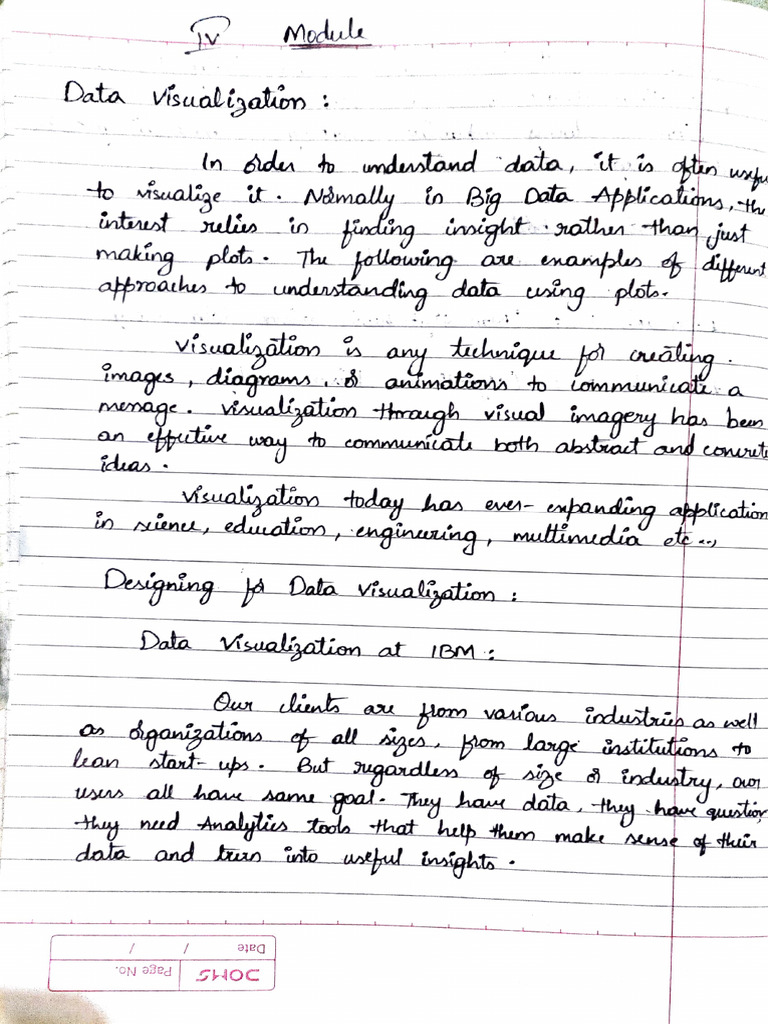 IV Module
Data Visualization :
In order to understand data, it is often usefu
to visualize it. Normally in Big Data Applications, the
interest relies in finding insight rather than just
making plots. The following are examples of different
approaches to understanding data using plots.
Visualization is any technique for creating
images, diagrams, or animations to communicate a
message. Visualization through visual imagery has been
an effective way to communicate both abstract and concrete
ideas.
Visualization today has ever-expanding application
in science, education, engineering, multimedia etc..,
Designing for Data Visualization :
Data Visualization at IBM :
Our clients are from various industries as well
as organizations of all sizes, from large institutions to
lean start-ups. But regardless of size or industry, our
users all have same goal. They have data, they have question
they need Analytics tools that help them make sense of their
data and turn into useful insights.
DOMS Page No.
Date / /